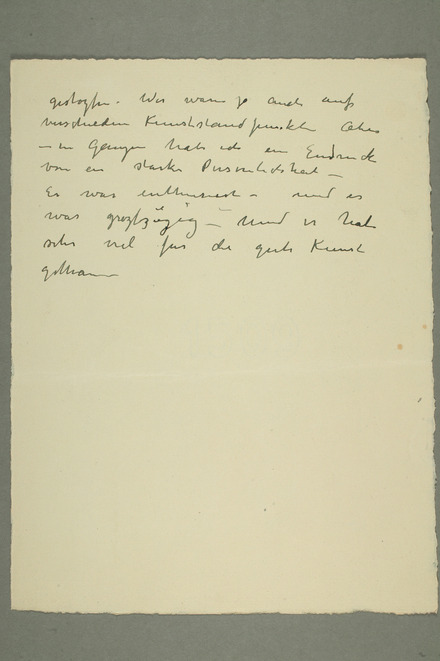 gestorben. Wir waren ja auch auf
verschieden Kunststandpunkten Aber
– im Ganzen hatte ich ein Eindruck
von ein starke Personlichkeit –
Er war enthusiast – und er
war grozfzügig – und er hat
sehr viel für die gute Kunst
gethan –